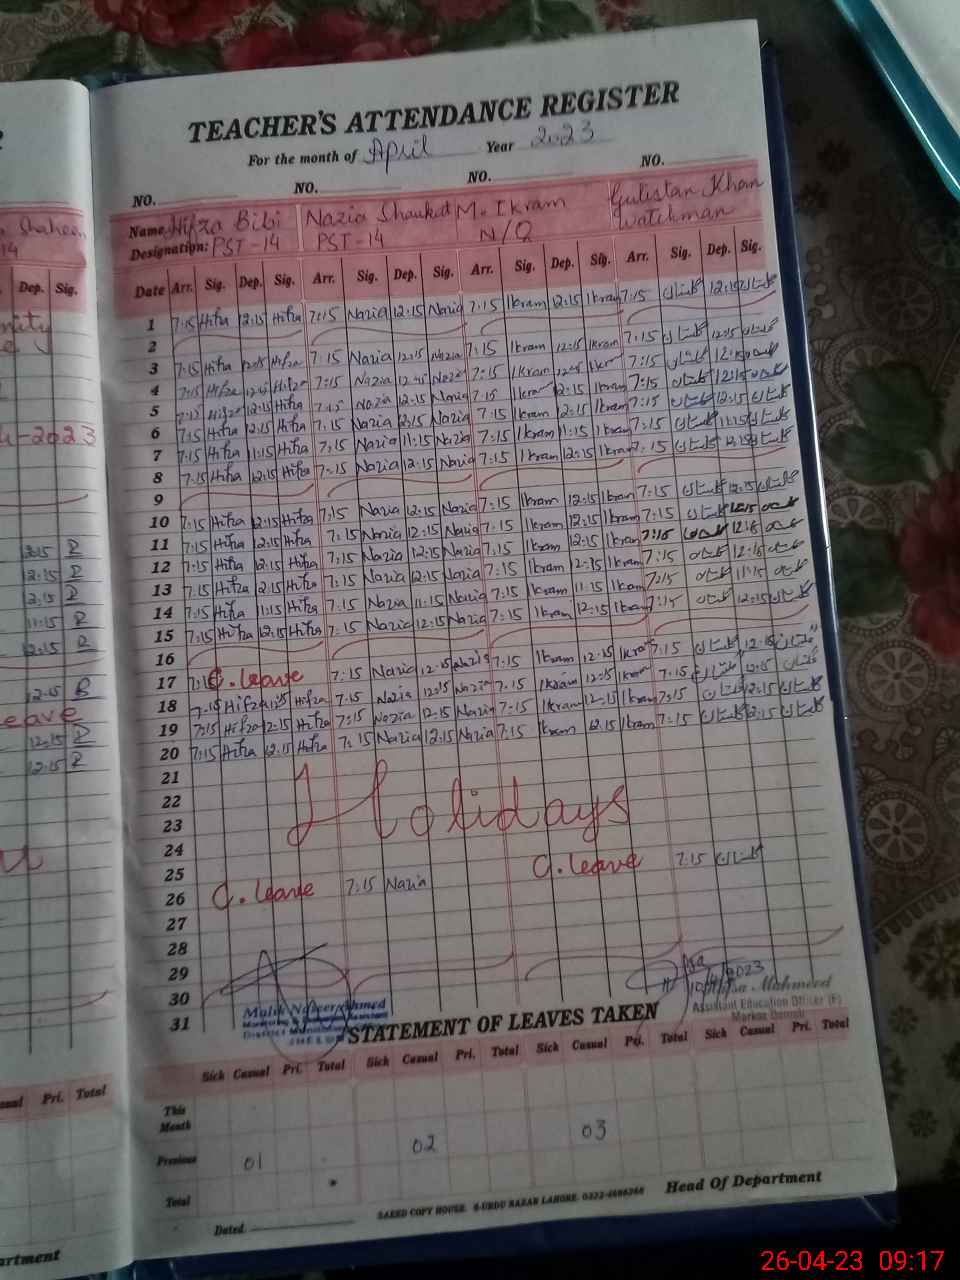 TEACHER'S ATTENDANCE REGISTER
For the month of April Year 2023
NO. NO. NO. NO.
Name Hifza Bibi Nazia Shaukat M. Ikram Gulistan Khan
Designation: PST-14 PST-14 N/Q Watchman
Date Arr. Sig. Dep. Sig. Arr. Sig. Dep. Sig. Arr. Sig. Dep. Sig. Arr. Sig. Dep. Sig.
1 7:15 Hifza 12:15 Hifza 7:15 Nazia 12:15 Nazia 7:15 Ikram 12:15 Ikram 7:15 گلستان 12:15 گلستان
2
3 7:15 Hifza 12:15 Hifza 7:15 Nazia 12:15 Nazia 7:15 Ikram 12:15 Ikram 7:15 گلستان 12:15 گلستان
4 7:15 Hifza 12:15 Hifza 7:15 Nazia 12:15 Nazia 7:15 Ikram 12:15 Ikram 7:15 گلستان 12:15 گلستان
5 7:15 Hifza 12:15 Hifza 7:15 Nazia 12:15 Nazia 7:15 Ikram 12:15 Ikram 7:15 گلستان 12:15 گلستان
6 7:15 Hifza 12:15 Hifza 7:15 Nazia 12:15 Nazia 7:15 Ikram 12:15 Ikram 7:15 گلستان 12:15 گلستان
7 7:15 Hifza 11:15 Hifza 7:15 Nazia 11:15 Nazia 7:15 Ikram 11:15 Ikram 7:15 گلستان 11:15 گلستان
8 7:15 Hifza 12:15 Hifza 7:15 Nazia 12:15 Nazia 7:15 Ikram 12:15 Ikram 7:15 گلستان 12:15 گلستان
9
10 7:15 Hifza 12:15 Hifza 7:15 Nazia 12:15 Nazia 7:15 Ikram 12:15 Ikram 7:15 گلستان 12:15 گلستان
11 7:15 Hifza 12:15 Hifza 7:15 Nazia 12:15 Nazia 7:15 Ikram 12:15 Ikram 7:15 گلستان 12:15 گلستان
12 7:15 Hifza 12:15 Hifza 7:15 Nazia 12:15 Nazia 7:15 Ikram 12:15 Ikram 7:15 گلستان 12:15 گلستان
13 7:15 Hifza 12:15 Hifza 7:15 Nazia 12:15 Nazia 7:15 Ikram 12:15 Ikram 7:15 گلستان 12:15 گلستان
14 7:15 Hifza 11:15 Hifza 7:15 Nazia 11:15 Nazia 7:15 Ikram 11:15 Ikram 7:15 گلستان 11:15 گلستان
15 7:15 Hifza 12:15 Hifza 7:15 Nazia 12:15 Nazia 7:15 Ikram 12:15 Ikram 7:15 گلستان 12:15 گلستان
16
17 C. leave 7:15 Nazia 12:15 Nazia 7:15 Ikram 12:15 Ikram 7:15 گلستان 12:15 گلستان
18 7:15 Hifza 12:15 Hifza 7:15 Nazia 12:15 Nazia 7:15 Ikram 12:15 Ikram 7:15 گلستان 12:15 گلستان
19 7:15 Hifza 12:15 Hifza 7:15 Nazia 12:15 Nazia 7:15 Ikram 12:15 Ikram 7:15 گلستان 12:15 گلستان
20 7:15 Hifza 12:15 Hifza 7:15 Nazia 12:15 Nazia 7:15 Ikram 12:15 Ikram 7:15 گلستان 12:15 گلستان
21
22
Holidays
23
24
25
26 C. leave 7:15 Nazia C. leave 7:15 گلستان
27
28
29
30
31
Malik Naseer Ahmed
Assistant Education Officer (F)
STATEMENT OF LEAVES TAKEN
Sick Casual Pri. Total Sick Casual Pri. Total Sick Casual Pri. Total Sick Casual Pri. Total
This Month
Previous 01 02 03
Total
Dated.
SAEED COPY HOUSE. 6-URDU BAZAR LAHORE.
Head Of Department
Shaheen
14
Dep. Sig.
2023
12:15 R
12:15 R
12:15 R
11:15 R
12:15 R
12:15 R
leave
12:15 R
12:15 R
Pri. Total
26-04-23 09:17